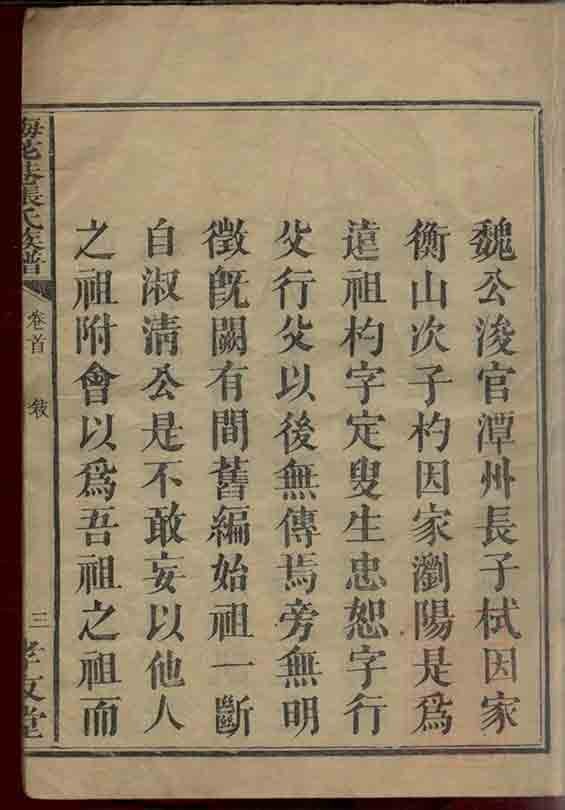 魏公浚官潭州長子栻因家
衡山次子杓因家瀏陽是爲
遠祖杓字定叟生忠恕字行
父行父以後無傳焉旁無明
徵旣闕有間舊編始祖一斷
自淑清公是不敢妄以他人
之祖附會以爲吾祖之祖而
梅花巷張氏族譜
卷首
敍
三
孝友堂